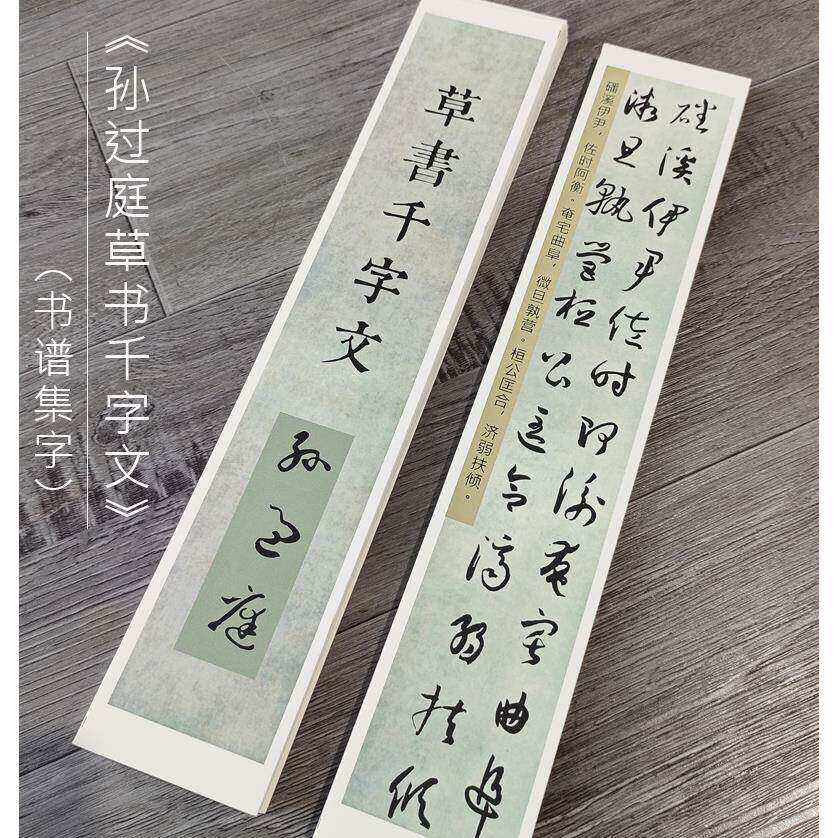 《孙过庭草书千字文》
（书谱集字）
草書千字文
孫過庭
磻溪伊尹佐時阿衡奄宅曲阜
微旦孰營桓公匡合濟弱扶傾
磻溪伊尹，佐时阿衡。奄宅曲阜，微旦孰营。桓公匡合，济弱扶倾。